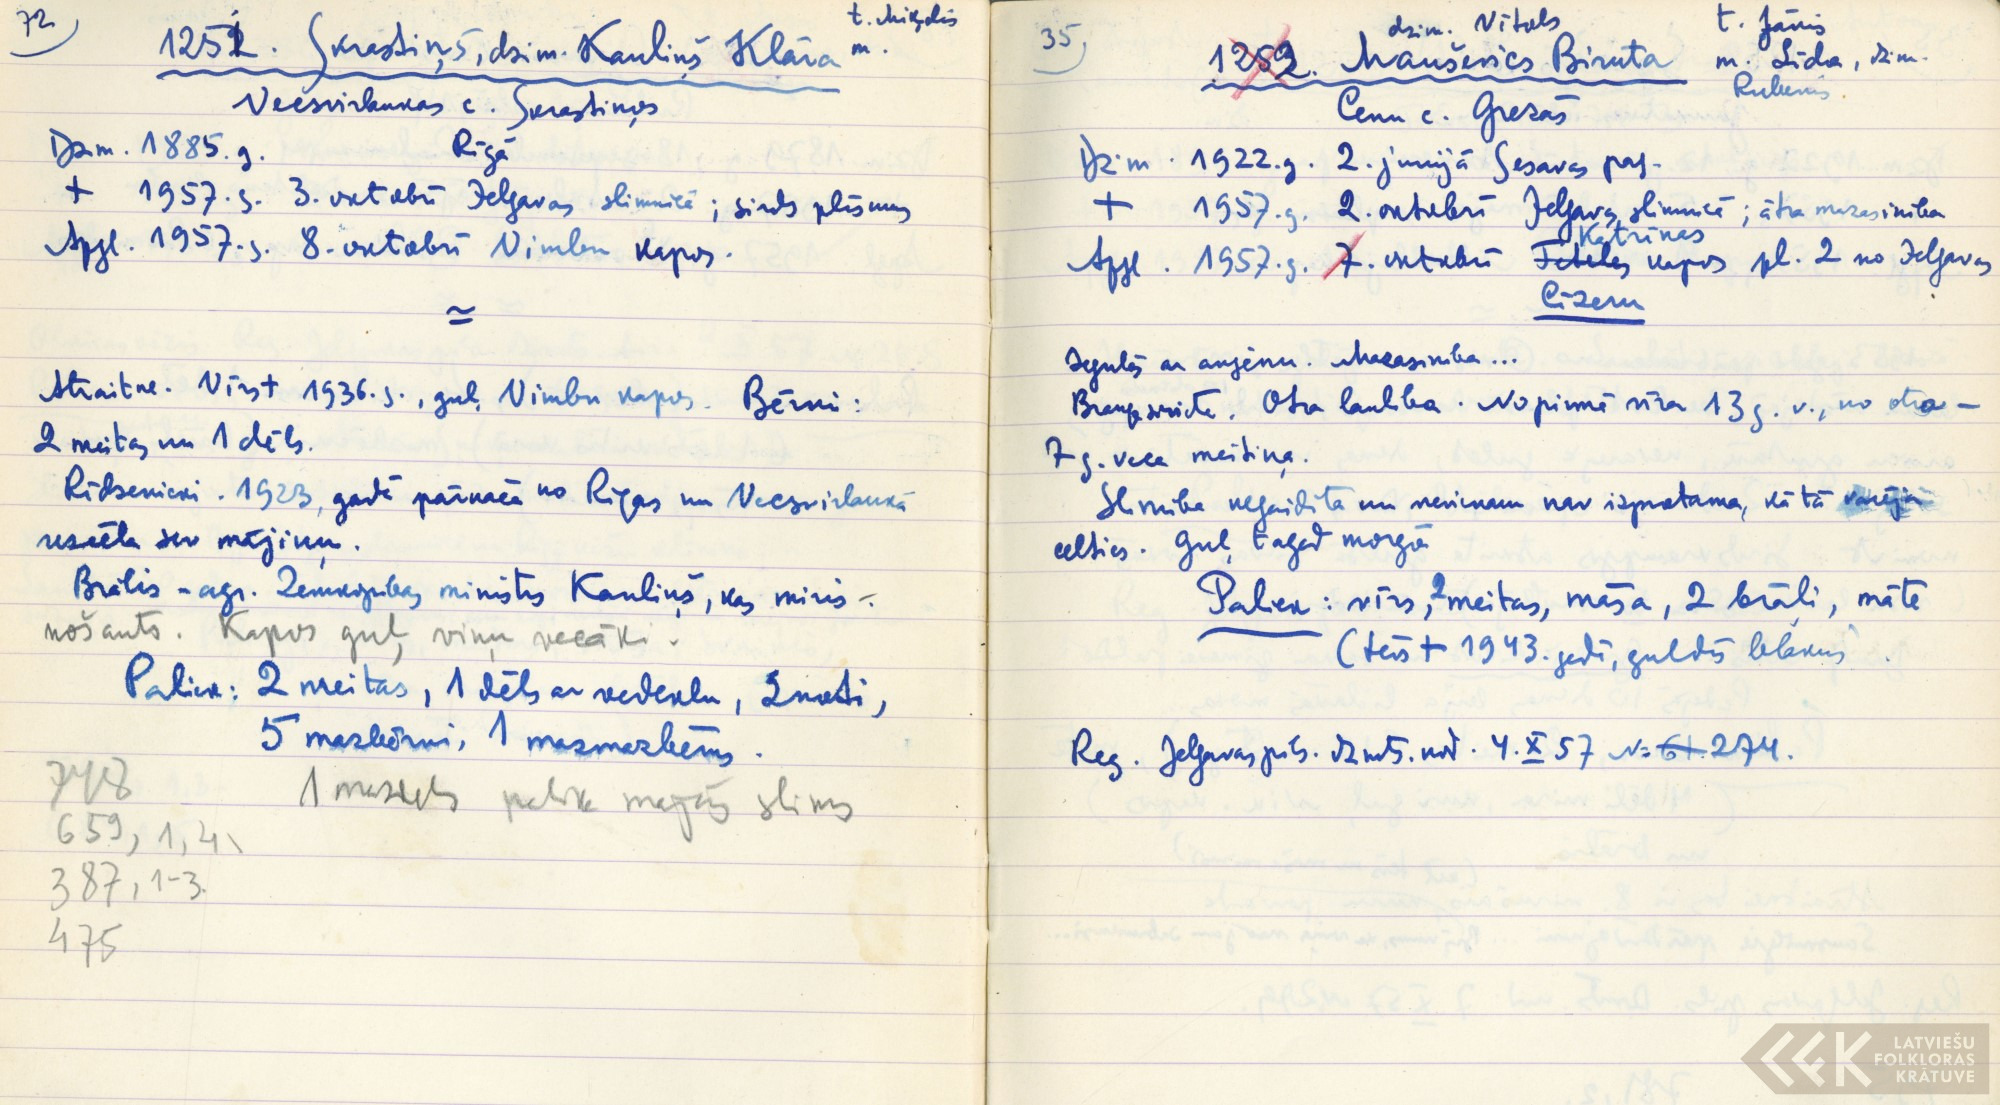 72
1251. Skrastiņš, dzim. Kauliņš Klāra
t. Miķelis
m.
Vecsvirlaukas c. Skrastiņos
Dzim. 1885. g. Rīgā
+ 1957. g. 3. oktobrī Jelgavas slimnīcā; sirds plīsums
Apgl. 1957. g. 8. oktobrī Vimbu kapos.
≃
Atraitne. Vīrs + 1936. g., guļ Vimbu kapos. Bērni:
2 meitas un 1 dēls.
Rīdzenieki. 1923. gadā pārnācā no Rīgas un Vecsvirlaukā
uzcēla sev mājiņu.
Brālis - agr. Zemkopības ministrs Kauliņš, kas miris -
nošauts. Kapos guļ viņu vecāki.
Paliek: 2 meitas, 1 dēls ar vedeklu, 2 znoti,
5 mazbērni, 1 mazmazbērns.
1 mazdēls paliek mājās slims
748
659, 1, 4
387, 1-3.
475
35,
dzim. Vītols
1252. Mauševics Biruta
t. Jānis
m. Līda, dzim.
Rubenis
Cenu c. Grezās
Dzim. 1922. g. 2. jūnijā Sesavas pag.
+ 1957. g. 2. oktobrī Jelgavas slimnīcā; ātra mazasinība
Katrīnas
Apgl. 1957. g. 7. oktobrī kapos pl. 2 no Jelgavas
Cīzeru
Iegulās ar angīnu. Mazasinība...
Otra laulība. No pirmā vīra 13 g. v., no otra -
7 g. veca meitiņa.
Slimība negaidīta un nevienam nav izprotama, kā tā varēja
celties. Guļ tagad morgā
Paliek: vīrs, 2 meitas, māsa, 2 brāļi, māte
(tēvs + 1943. gadā, guldīs blakus
Reg. Jelgavas pils. dzmts. nod. 4. X 57 № 274.
LATVIEŠU
FOLKLORAS
KRĀTUVE